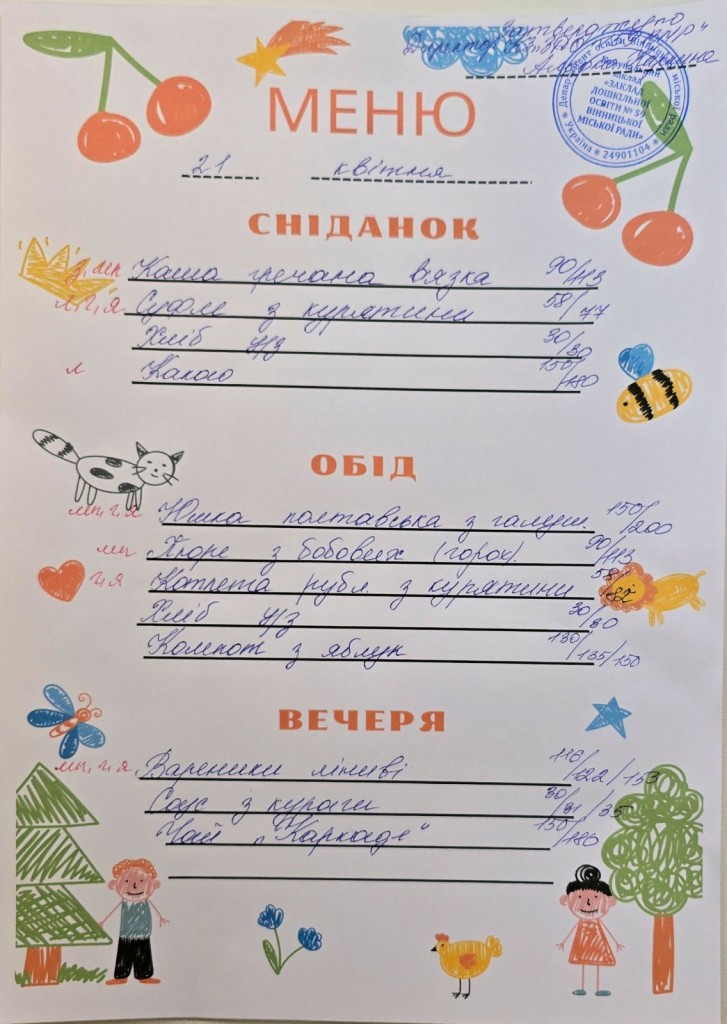 Затверджено
Директор
МЕНЮ
Департамент освіти Вінницької міської ради
заклад
«ЗАКЛАД
ДОШКІЛЬНОЇ
ОСВІТИ № 59
ВІННИЦЬКОЇ
МІСЬКОЇ РАДИ»
Україна * 24901104 *
21 квітня
СНІДАНОК
з, мп Каша гречана в'язка 90/113
м, г, я Суфле з курятини 58/77
Хліб ц/з 30/30
л Какао 150/180
ОБІД
мп, г, я Юшка полтавська з галуш. 150/200
мп Пюре з бобових (горох). 90/113
г, я Котлета рубл. з курятини 58/82
Хліб ц/з 30/30
Компот з яблук 130/135/150
ВЕЧЕРЯ
мп, г, я, Вареники ліниві 116/122/153
Соус з кураги 30/31/35
Чай „Каркаде“ 150/180